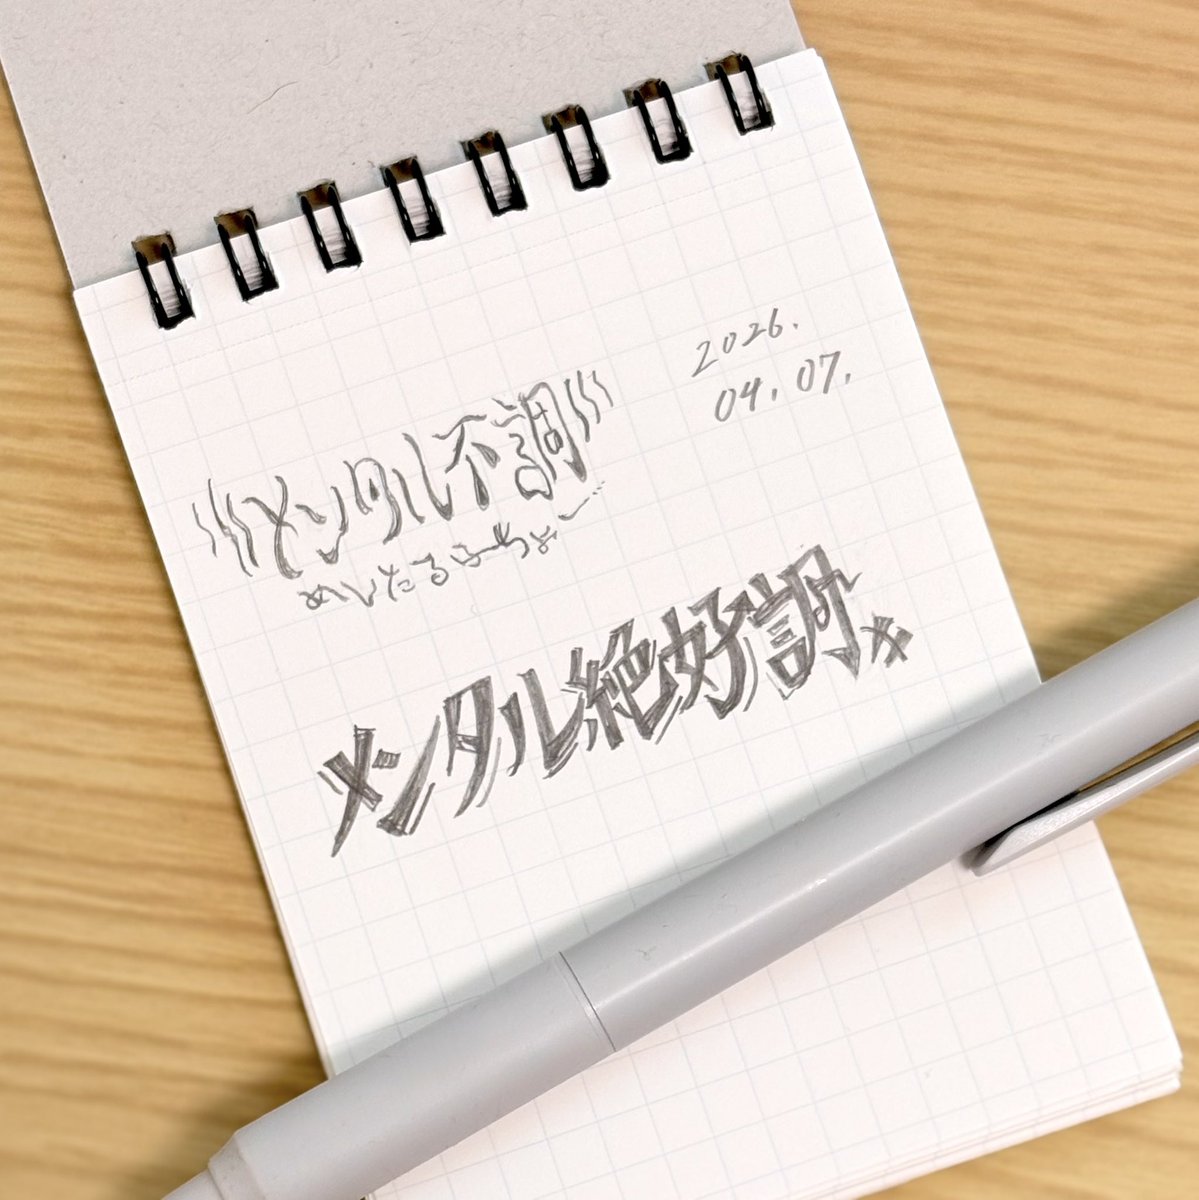 2026.
04.07.
メンタル不調
めんたるふちょー
メンタル絶好調